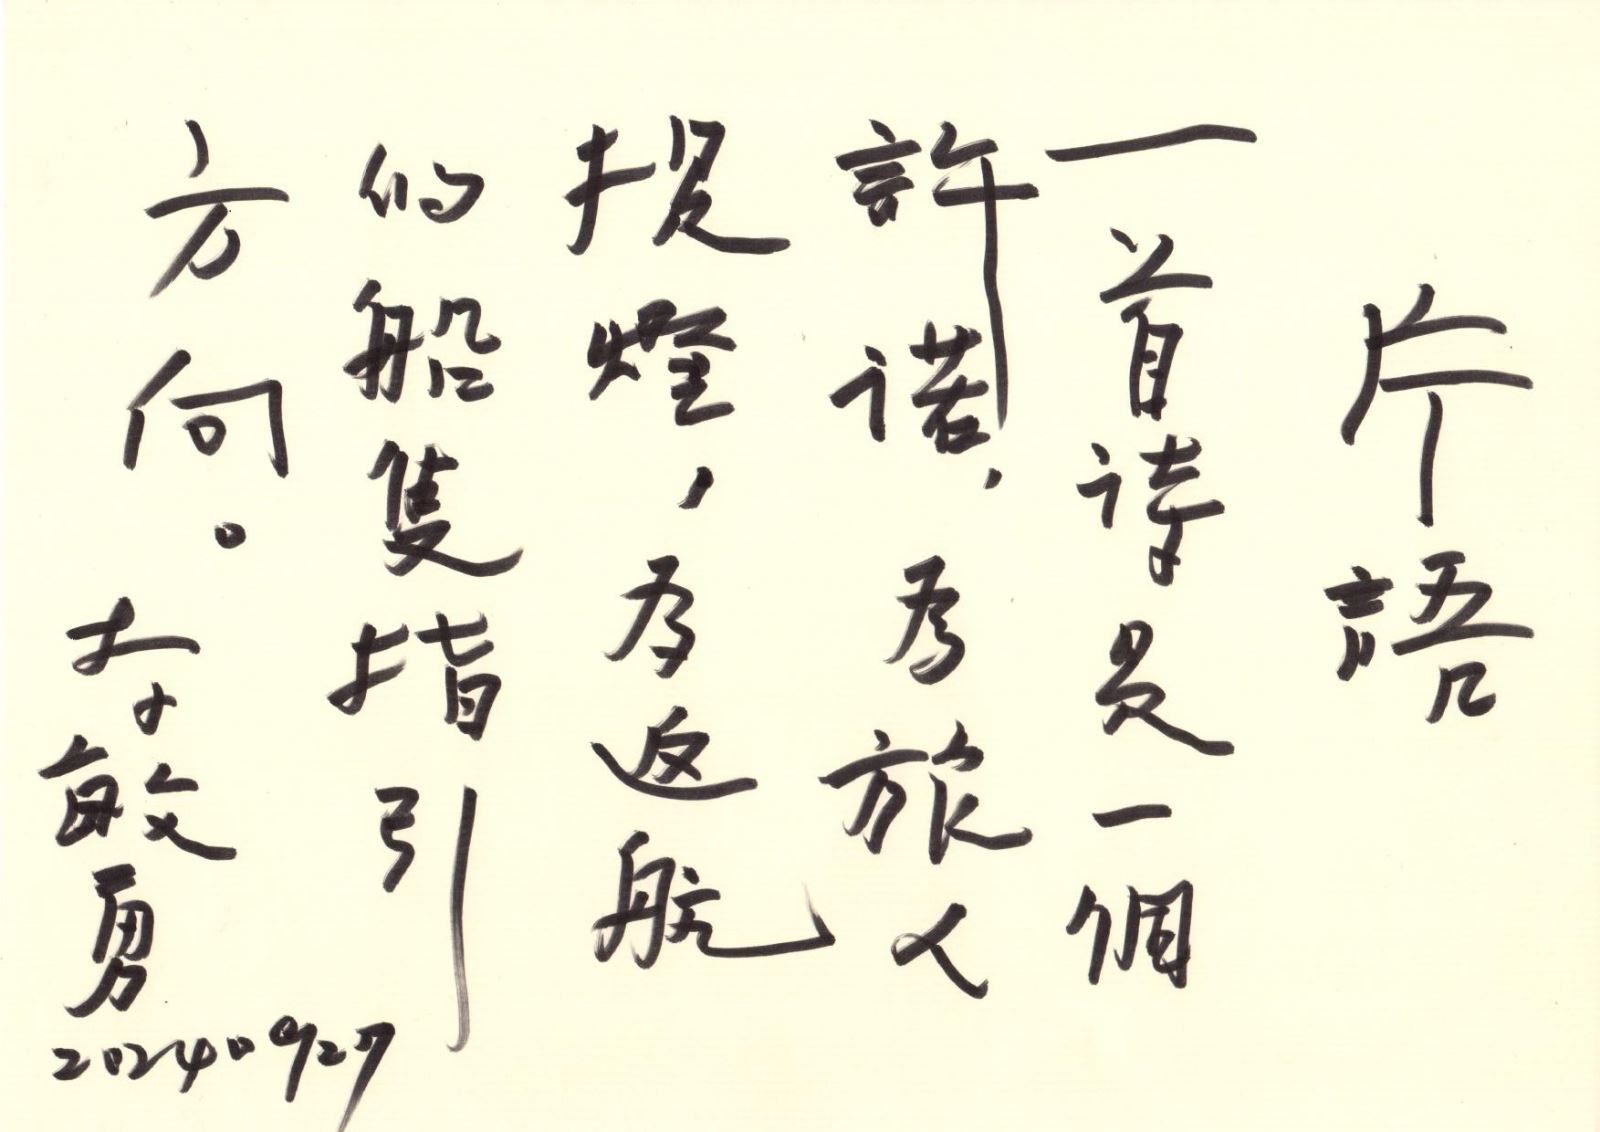 片語
一首詩是一個
許諾,為旅人
提燈,為返航
的船隻指引
方向。李敏勇
20240927